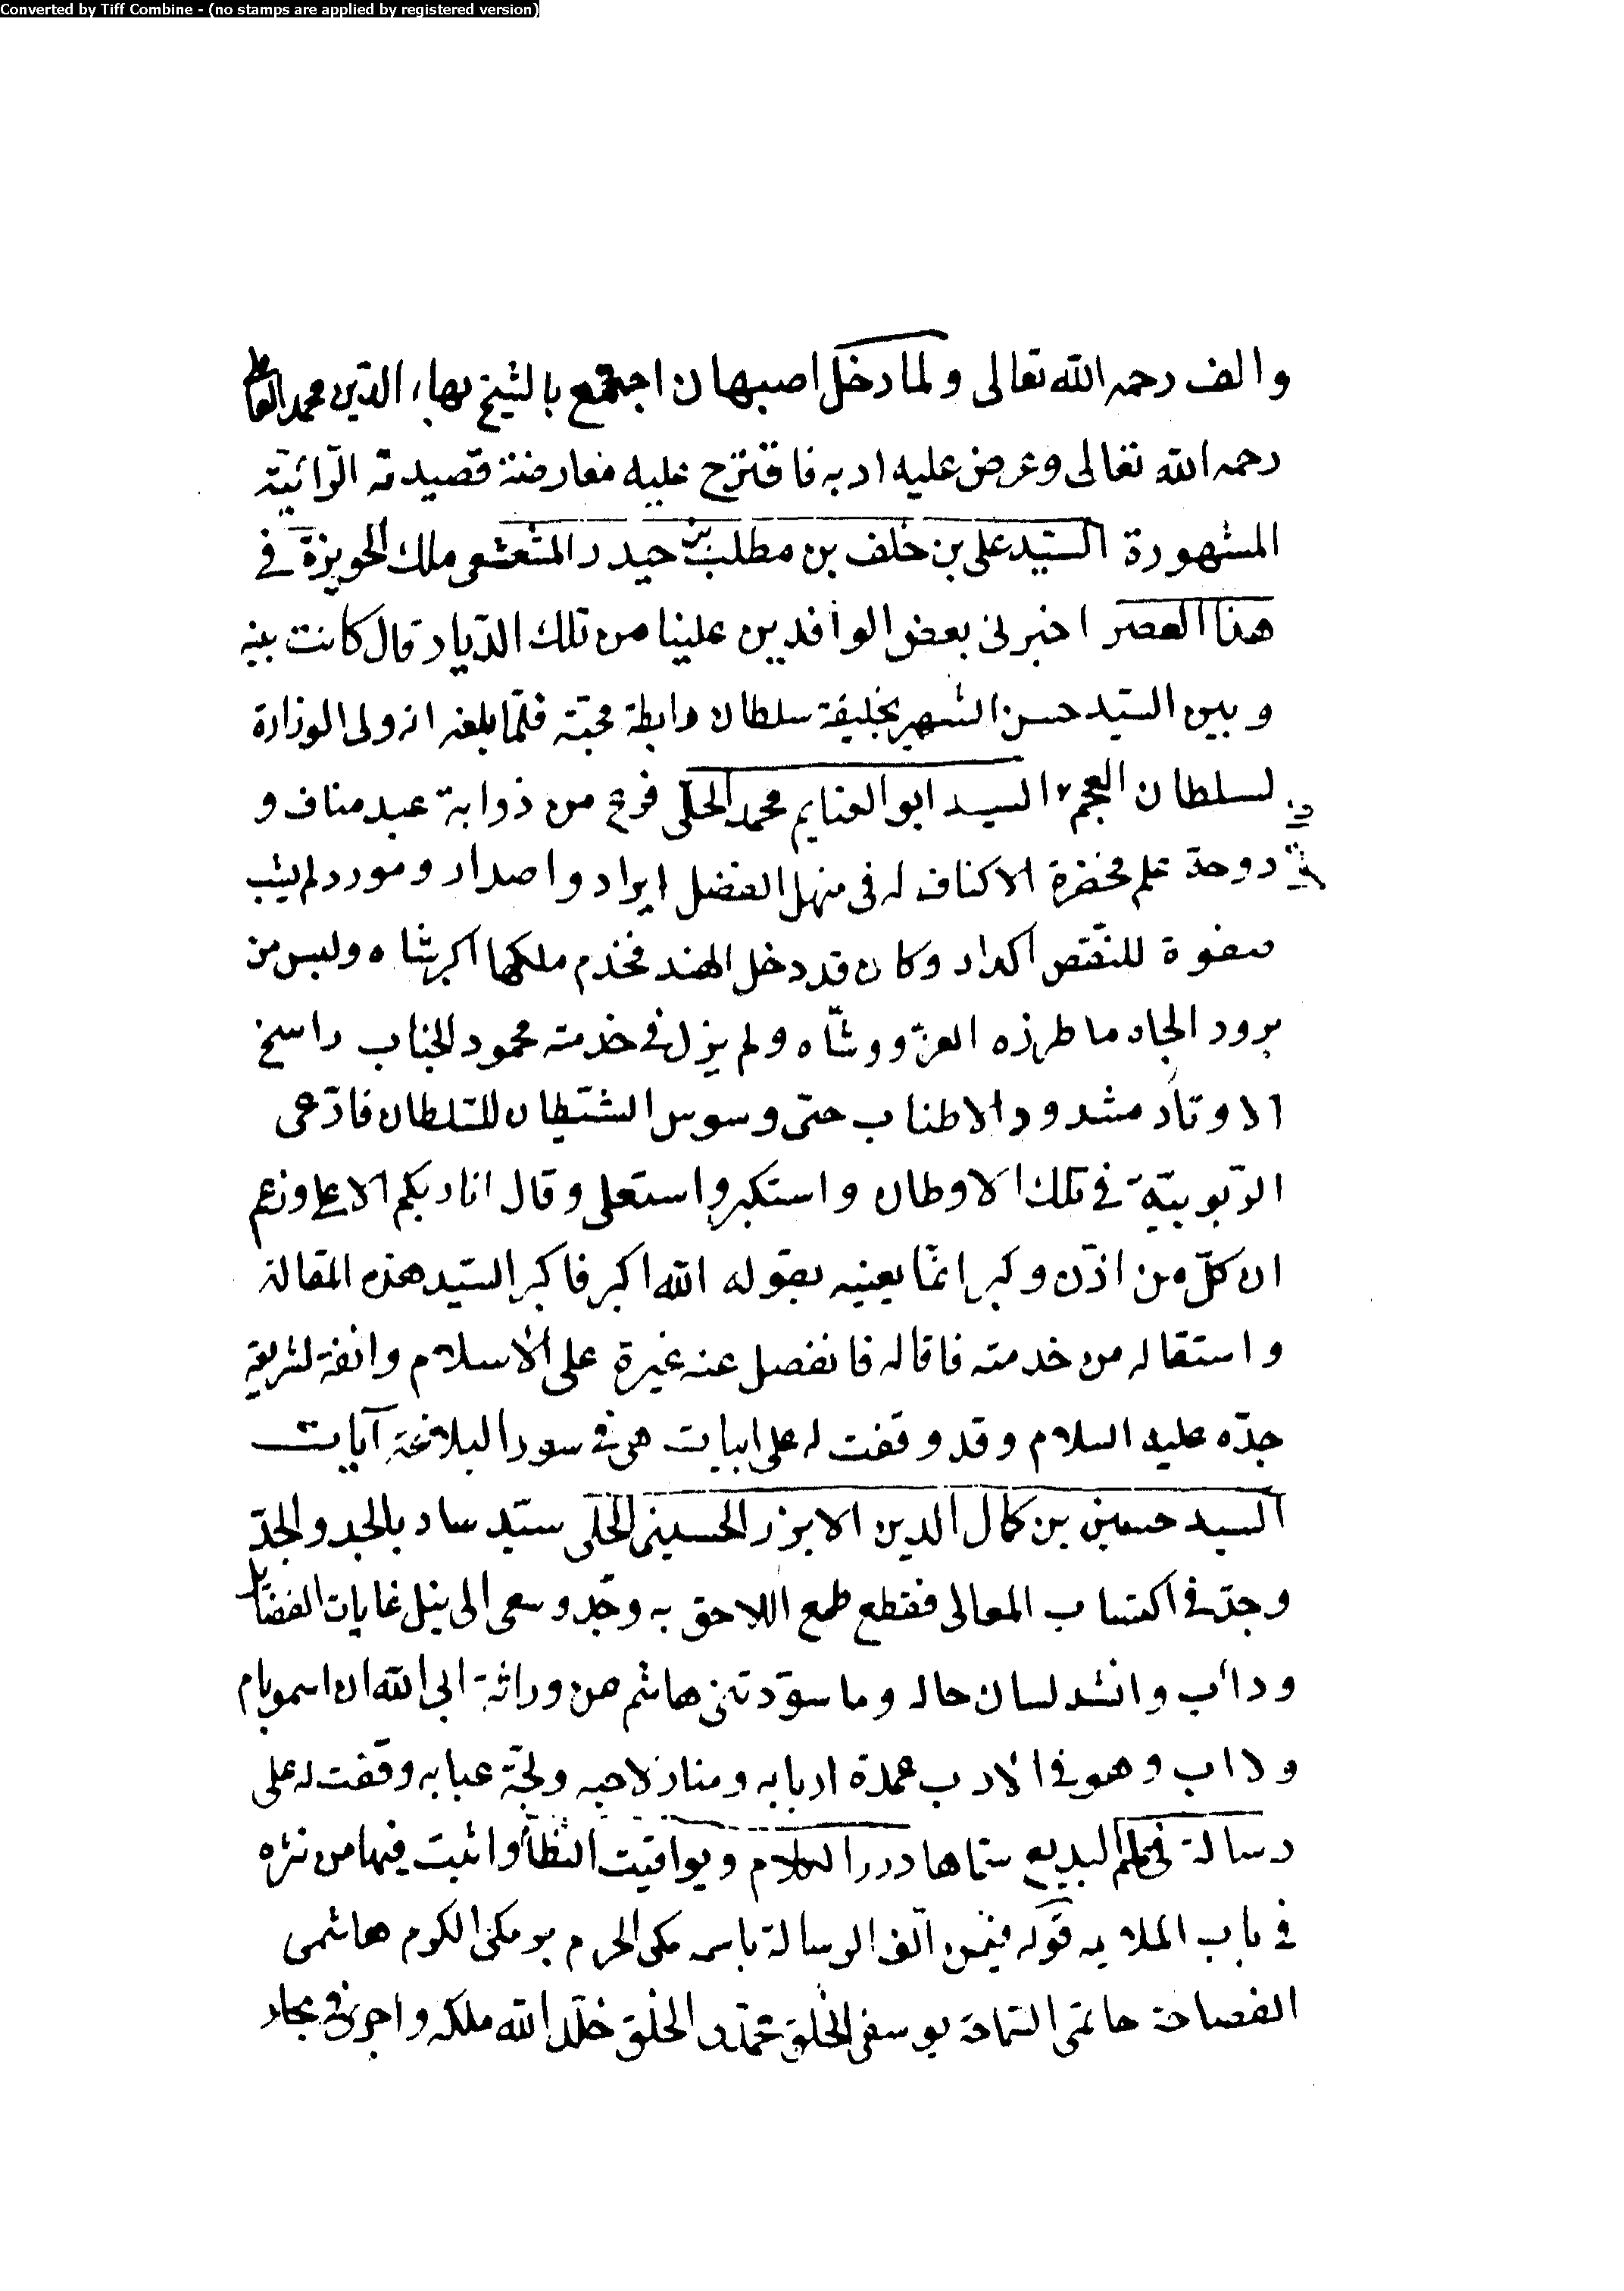 Converted by Tiff Combine - (no stamps are applied by registered version)
والف رحمه الله تعالى ولما دخل اصبهان اجتمع بالشيخ بهاء الدين محمد العاملي
رحمه الله تعالى وعرض عليه ادبه فاقترح عليه معارضة قصيدته الرّائيّة
المشهورة السّيد على بن خلف بن مطلب بن حيدر المشعشعى ملك الحويزة في
هذا العصر اخبرنى بعض الوافدين علينا من تلك الدّيار قال كانت بينه
وبين السّيد حسن الشهير بخليفة سلطان رابطة محبّة فلمّا بلغه انه ولى الوزارة
لسلطان العجم السيد ابو الغنايم محمد الحلّى فرع من ذوابة عبد مناف و
دوحة علم مخضرة الاكناف له فى منهل الفضل ايراد واصدار ومورد لم يشب
صفوة للنّقص اكدار وكان قد دخل الهند فخدم ملكها اكبرشاه ولبس من
برود الجاه ما طرزه العزّ ووشّاه ولم يزل في خدمته محمود الجناب راسخ
الاوتاد مشدود الاطناب حتى وسوس الشّيطان للسّلطان فادّعى
الرّبوبيّة في تلك الاوطان واستكبر واستعلى وقال انا ربكم الاعلى وزعم
ان كلّ من اذّن وكبر انمّا يعنيه بقوله الله اكبر فاكبر السّيد هذه المقالة
واستقاله من خدمته فاقاله فانفصل عنه غيرة على الاسلام وانفة لشريعة
جدّه عليه السلام وقد وقفت له على ابيات هى في سور البلاغة آيات
السيد حسين بن كمال الدين الابزر الحسينى الحلى سيّد ساد بالجد والجدّ
وجدّ في اكتساب المعالى فقطع طمع اللاحق به وجّد وسعى الى نيل غايات الفضائل
ودأب وانشد لسان حاله وما سوّدتنى هاشم من وراثة ابى الله ان اسمو بام
ولا اب وهو في الادب عمدة اربابه ومنار لاحبه ولجّة عبابه وقفت له على
رسالة في علم البديع سمّاها درر الكلام ويواقيت النظام واثبت فيها من نثره
في باب الملايه قوله فيمن الّف الرسالة باسمه مكى الحرم برمكى الكرم هاشمى
الفصاحة حاتمى السّماحة يوسفى الخلق محمّدى الخلق خلّد الله ملكه واجرى في بحار